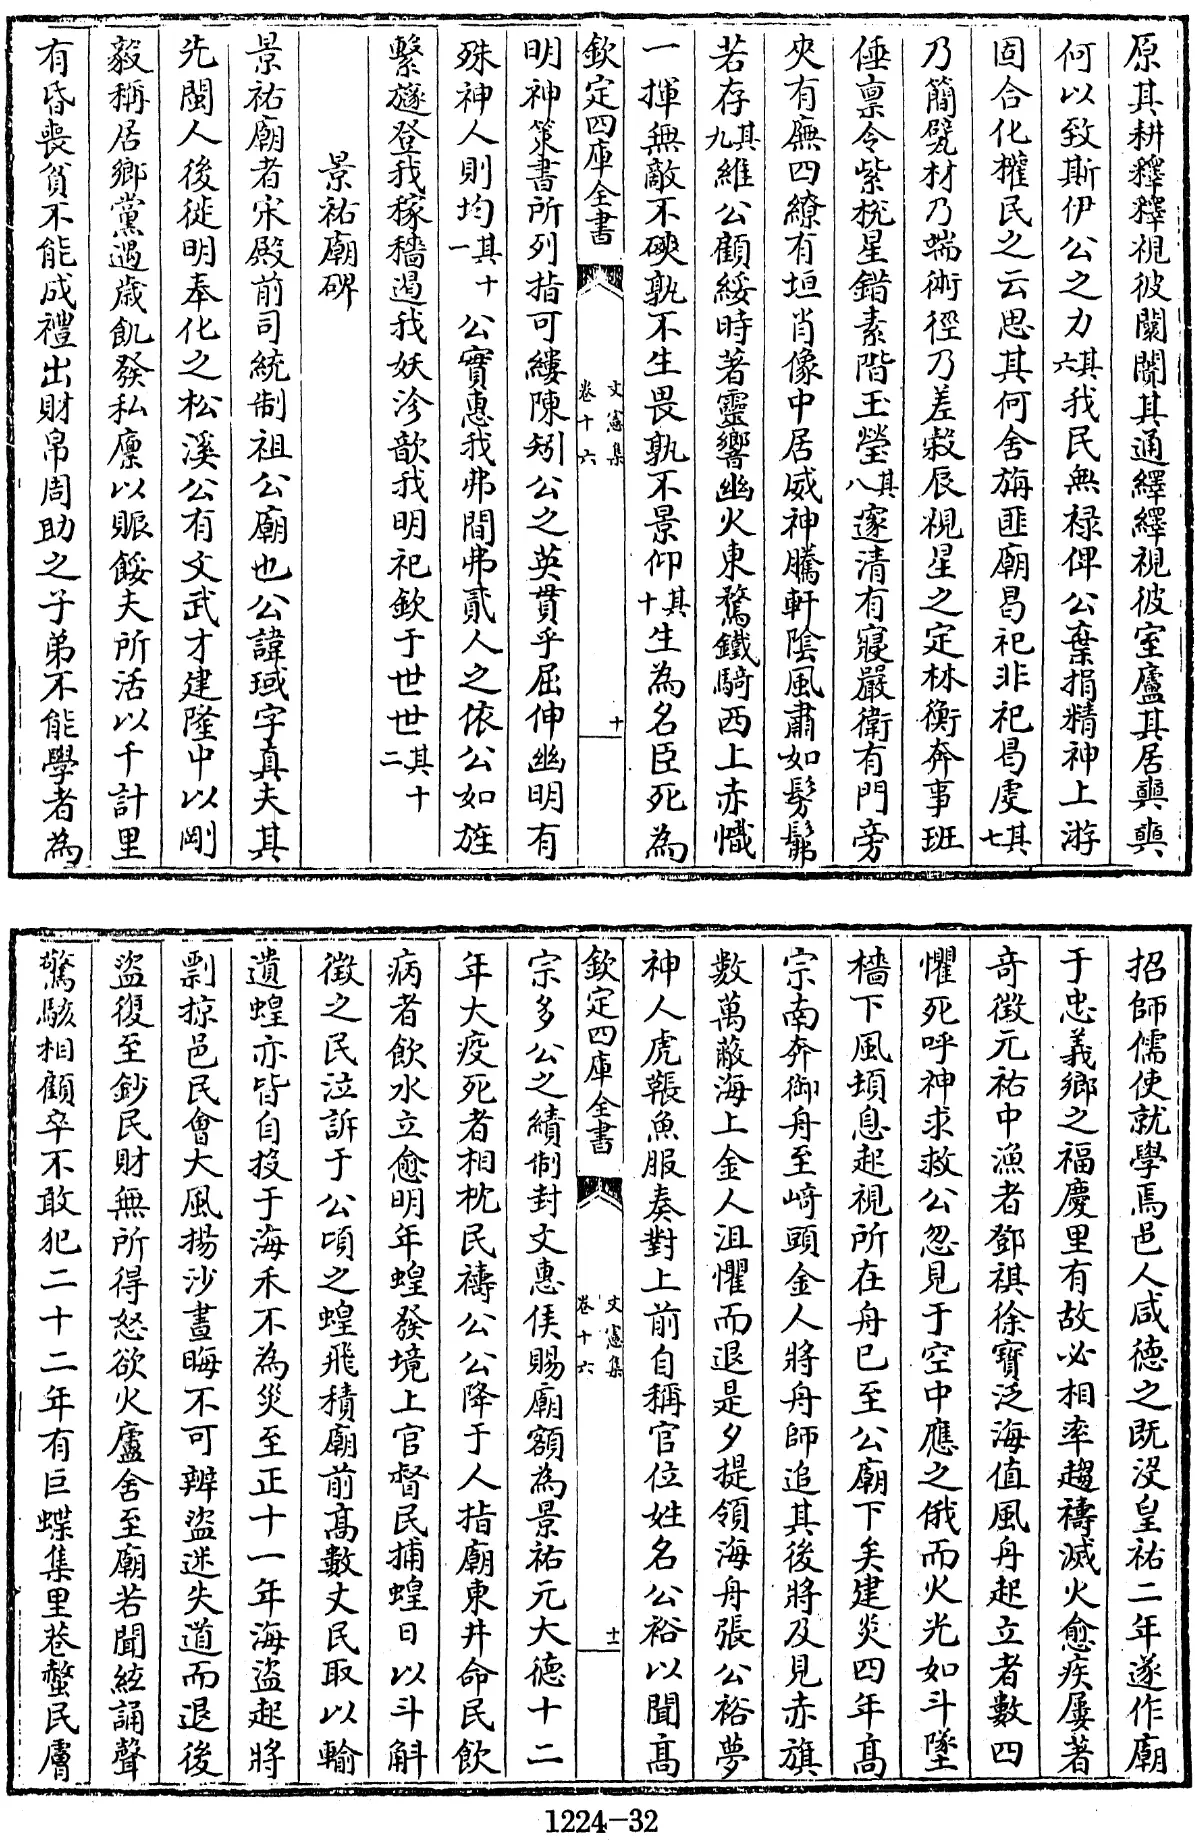 原其耕釋釋視彼闤闠其通繹繹視彼室廬其居奭奭
何以致斯伊公之力其六我民無禄俾公棄捐精神上游
固合化權民之云思其何舍旃匪廟曷祀非祀曷虔其七
乃簡甓材乃端術徑乃差穀辰視星之定林衡奔事班
倕禀令紫梲星錯素階玉瑩其八邃清有寢嚴衛有門旁
夾有廡四繚有垣肖像中居威神騰軒陰風肅如髣髴
若存其九維公顧綏時著靈響幽火東騖鐵騎西上赤幟
一揮無敵不磢孰不生畏孰不景仰其十生為名臣死為
欽定四庫全書
文憲集
卷十六
十
明神策書所列指可縷陳矧公之英貫乎屈伸幽明有
殊神人則均其十一公實惠我弗間弗貳人之依公如旌
繫䉌登我稼穡遏我妖沴歆我明祀欽于世世其十二
景祐廟碑
景祐廟者宋殿前司統制祖公廟也公諱域字真夫其
先閩人後徙明奉化之松溪公有文武才建隆中以剛
毅稱居鄉黨遇歳飢發私廪以賑餒夫所活以千計里
有昏喪貧不能成禮出財帛周助之子弟不能學者為
招師儒使就學焉邑人咸德之既没皇祐二年遂作廟
于忠義鄉之福慶里有故必相率趨禱滅火愈疾屢著
奇徵元祐中漁者鄧祺徐寶泛海值風舟起立者數四
懼死呼神求救公忽見于空中應之俄而火光如斗墜
檣下風頓息起視所在舟已至公廟下矣建炎四年高
宗南奔御舟至﨑頭金人將舟師追其後將及見赤旗
數萬蔽海上金人沮懼而退是夕提領海舟張公裕夢
神人虎韔魚服奏對上前自稱官位姓名公裕以聞高
欽定四庫全書
文憲集
卷十六
十一
宗多公之績制封文惠侯賜廟額為景祐元大德十二
年大疫死者相枕民禱公公降于人指廟東井命民飲
病者飲水立愈明年蝗發境上官督民捕蝗日以斗斛
徴之民泣訴于公頃之蝗飛積廟前高數丈民取以輸
遺蝗亦皆自投于海禾不為災至正十一年海盜起將
剽掠邑民會大風揚沙晝晦不可辨盜迷失道而退後
盜復至鈔民財無所得怒欲火廬舍至廟若聞絃誦聲
驚駭相顧卒不敢犯二十二年有巨蝶集里巷螫民膚
1224-32